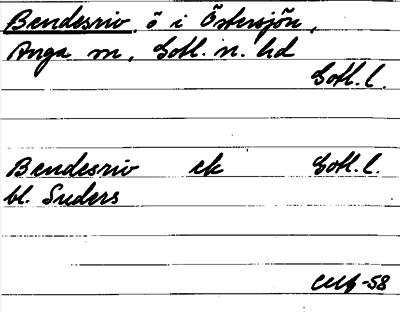 Bendesriv ö i Östersjön,
Anga sn, Gotl. n. hd
Gotl. l.
Bendesriv ek Gotl. l.
bl. Suders
-58